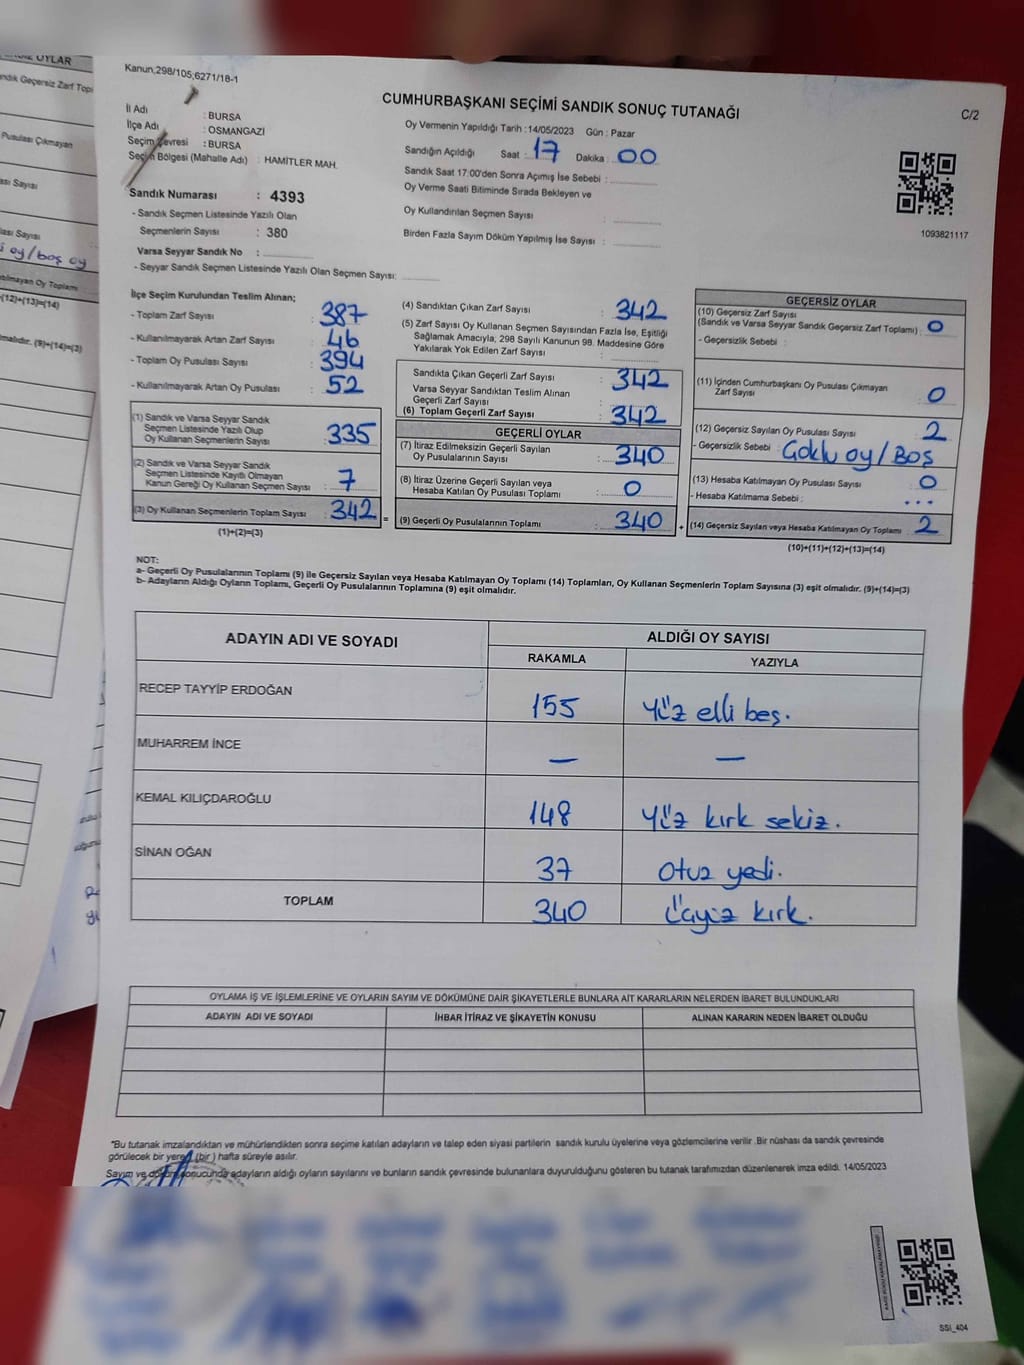 Kanun,298/105;6271/18-1
CUMHURBAŞKANI SEÇİMİ SANDIK SONUÇ TUTANAĞI
C/2
İl Adı : BURSA
İlçe Adı : OSMANGAZİ
Seçim Çevresi : BURSA
Seçim Bölgesi (Mahalle Adı) : HAMİTLER MAH.
Sandık Numarası : 4393
- Sandık Seçmen Listesinde Yazılı Olan
Seçmenlerin Sayısı : 380
Varsa Seyyar Sandık No :
- Seyyar Sandık Seçmen Listesinde Yazılı Olan Seçmen Sayısı:
Oy Vermenin Yapıldığı Tarih :14/05/2023 Gün : Pazar
Sandığın Açıldığı Saat : 17 Dakika : 00
Sandık Saat 17:00'den Sonra Açımış İse Sebebi :
Oy Verme Saati Bitiminde Sırada Bekleyen ve
Oy Kullandırılan Seçmen Sayısı :
Birden Fazla Sayım Döküm Yapılmış İse Sayısı :
1093821117
İlçe Seçim Kurulundan Teslim Alınan;
- Toplam Zarf Sayısı : 387
- Kullanılmayarak Artan Zarf Sayısı : 46
- Toplam Oy Pusulası Sayısı : 394
- Kullanılmayarak Artan Oy Pusulası : 52
(1) Sandık ve Varsa Seyyar Sandık
Seçmen Listesinde Yazılı Olup
Oy Kullanan Seçmenlerin Sayısı : 335
(2) Sandık ve Varsa Seyyar Sandık
Seçmen Listesinde Kayıtlı Olmayan
Kanun Gereği Oy Kullanan Seçmen Sayısı : 7
(3) Oy Kullanan Seçmenlerin Toplam Sayısı : 342 =
(1)+(2)=(3)
(4) Sandıktan Çıkan Zarf Sayısı : 342
(5) Zarf Sayısı Oy Kullanan Seçmen Sayısından Fazla İse, Eşitliği
Sağlamak Amacıyla, 298 Sayılı Kanunun 98. Maddesine Göre
Yakılarak Yok Edilen Zarf Sayısı :
Sandıkta Çıkan Geçerli Zarf Sayısı : 342
Varsa Seyyar Sandıktan Teslim Alınan
Geçerli Zarf Sayısı :
(6) Toplam Geçerli Zarf Sayısı : 342
GEÇERLİ OYLAR
(7) İtiraz Edilmeksizin Geçerli Sayılan
Oy Pusulalarının Sayısı : 340
(8) İtiraz Üzerine Geçerli Sayılan veya
Hesaba Katılan Oy Pusulası Toplamı : 0
(9) Geçerli Oy Pusulalarının Toplamı : 340 +
GEÇERSİZ OYLAR
(10) Geçersiz Zarf Sayısı
(Sandık ve Varsa Seyyar Sandık Geçersiz Zarf Toplamı) : 0
- Geçersizlik Sebebi :
(11) İçinden Cumhurbaşkanı Oy Pusulası Çıkmayan
Zarf Sayısı : 0
(12) Geçersiz Sayılan Oy Pusulası Sayısı : 2
- Geçersizlik Sebebi : Çoklu oy/Boş
(13) Hesaba Katılmayan Oy Pusulası Sayısı : 0
- Hesaba Katılmama Sebebi : ...
(14) Geçersiz Sayılan veya Hesaba Katılmayan Oy Toplamı : 2
(10)+(11)+(12)+(13)=(14)
NOT:
a- Geçerli Oy Pusulalarının Toplamı (9) ile Geçersiz Sayılan veya Hesaba Katılmayan Oy Toplamı (14) Toplamları, Oy Kullanan Seçmenlerin Toplam Sayısına (3) eşit olmalıdır. (9)+(14)=(3)
b- Adayların Aldığı Oyların Toplamı, Geçerli Oy Pusulalarının Toplamına (9) eşit olmalıdır.
ADAYIN ADI VE SOYADI ALDIĞI OY SAYISI
RAKAMLA YAZIYLA
RECEP TAYYİP ERDOĞAN 155 Yüz elli beş.
MUHARREM İNCE — —
KEMAL KILIÇDAROĞLU 148 Yüz kırk sekiz.
SİNAN OĞAN 37 Otuz yedi.
TOPLAM 340 Üçyüz kırk.
OYLAMA İŞ VE İŞLEMLERİNE VE OYLARIN SAYIM VE DÖKÜMÜNE DAİR ŞİKAYETLERLE BUNLARA AİT KARARLARIN NELERDEN İBARET BULUNDUKLARI
ADAYIN ADI VE SOYADI İHBAR İTİRAZ VE ŞİKAYETİN KONUSU ALINAN KARARIN NEDEN İBARET OLDUĞU
"Bu tutanak imzalandıktan ve mühürlendikten sonra seçime katılan adayların ve talep eden siyasi partilerin sandık kurulu üyelerine veya gözlemcilerine verilir .Bir nüshası da sandık çevresinde
görülecek bir yere (bir ) hafta süreyle asılır.
Sayım ve döküm sonucunda adayların aldığı oyların sayılarını ve bunların sandık çevresinde bulunanlara duyurulduğunu gösteren bu tutanak tarafımızdan düzenlenerek imza edildi. 14/05/2023
SSI_404